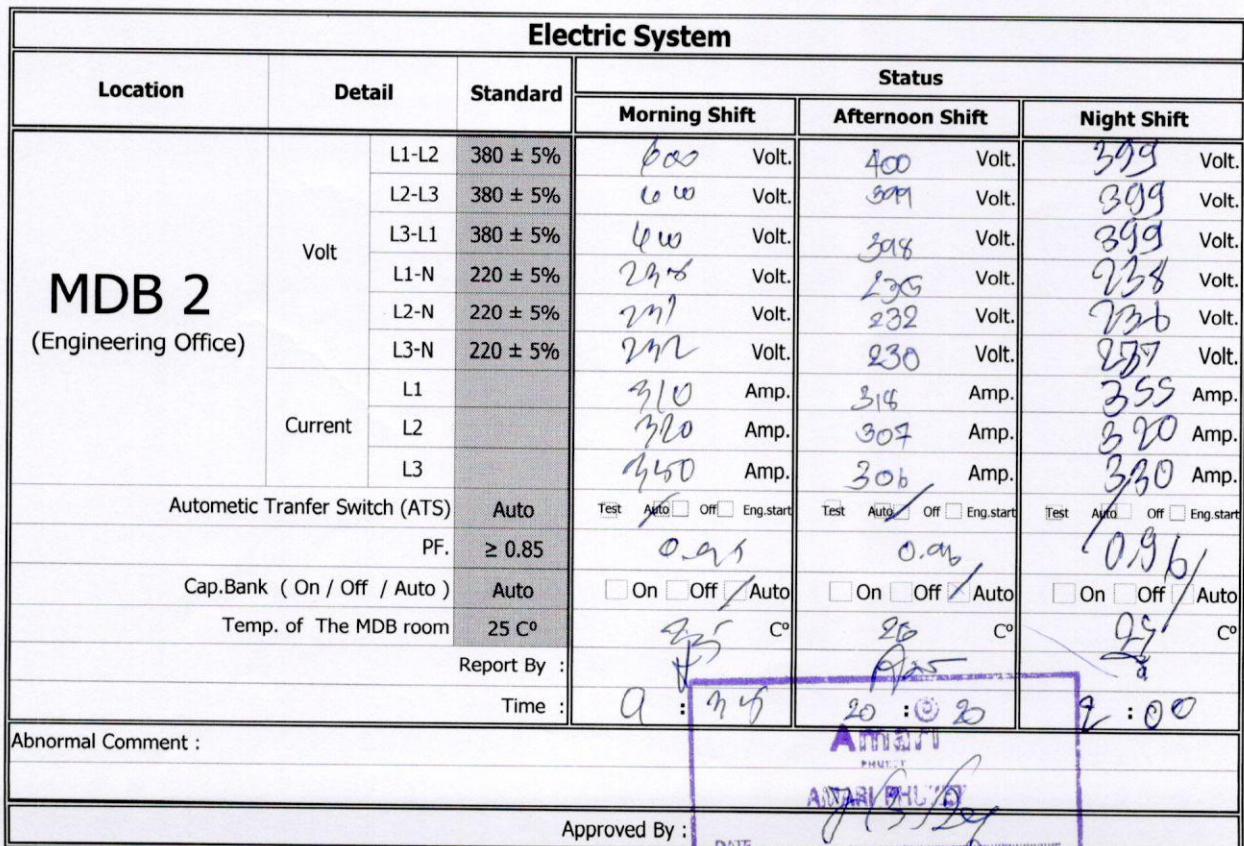 Electric System
Location Detail Standard Status
Morning Shift Afternoon Shift Night Shift
MDB 2
(Engineering Office)
Volt
L1-L2 380 ± 5% Volt. 400 Volt. 399 Volt.
L2-L3 380 ± 5% Volt. 399 Volt. 399 Volt.
L3-L1 380 ± 5% Volt. 398 Volt. 399 Volt.
L1-N 220 ± 5% Volt. Volt. 238 Volt.
L2-N 220 ± 5% Volt. 232 Volt. 236 Volt.
L3-N 220 ± 5% 232 Volt. 230 Volt. Volt.
Current
L1 310 Amp. 318 Amp. 355 Amp.
L2 320 Amp. 307 Amp. 320 Amp.
L3 Amp. 306 Amp. 330 Amp.
Autometic Tranfer Switch (ATS) Auto Test Auto Off Eng.start Test Auto Off Eng.start Test Auto Off Eng.start
PF. ≥ 0.85 0.95 0.96 0.96
Cap.Bank ( On / Off / Auto ) Auto On Off Auto On Off Auto On Off Auto
Temp. of The MDB room 25 C° C° C° C°
Report By :
Time : 9 : 20 : 20 2 : 00
Amari
PHUKET
AMARI PHUKET
Abnormal Comment :
Approved By :
DATE